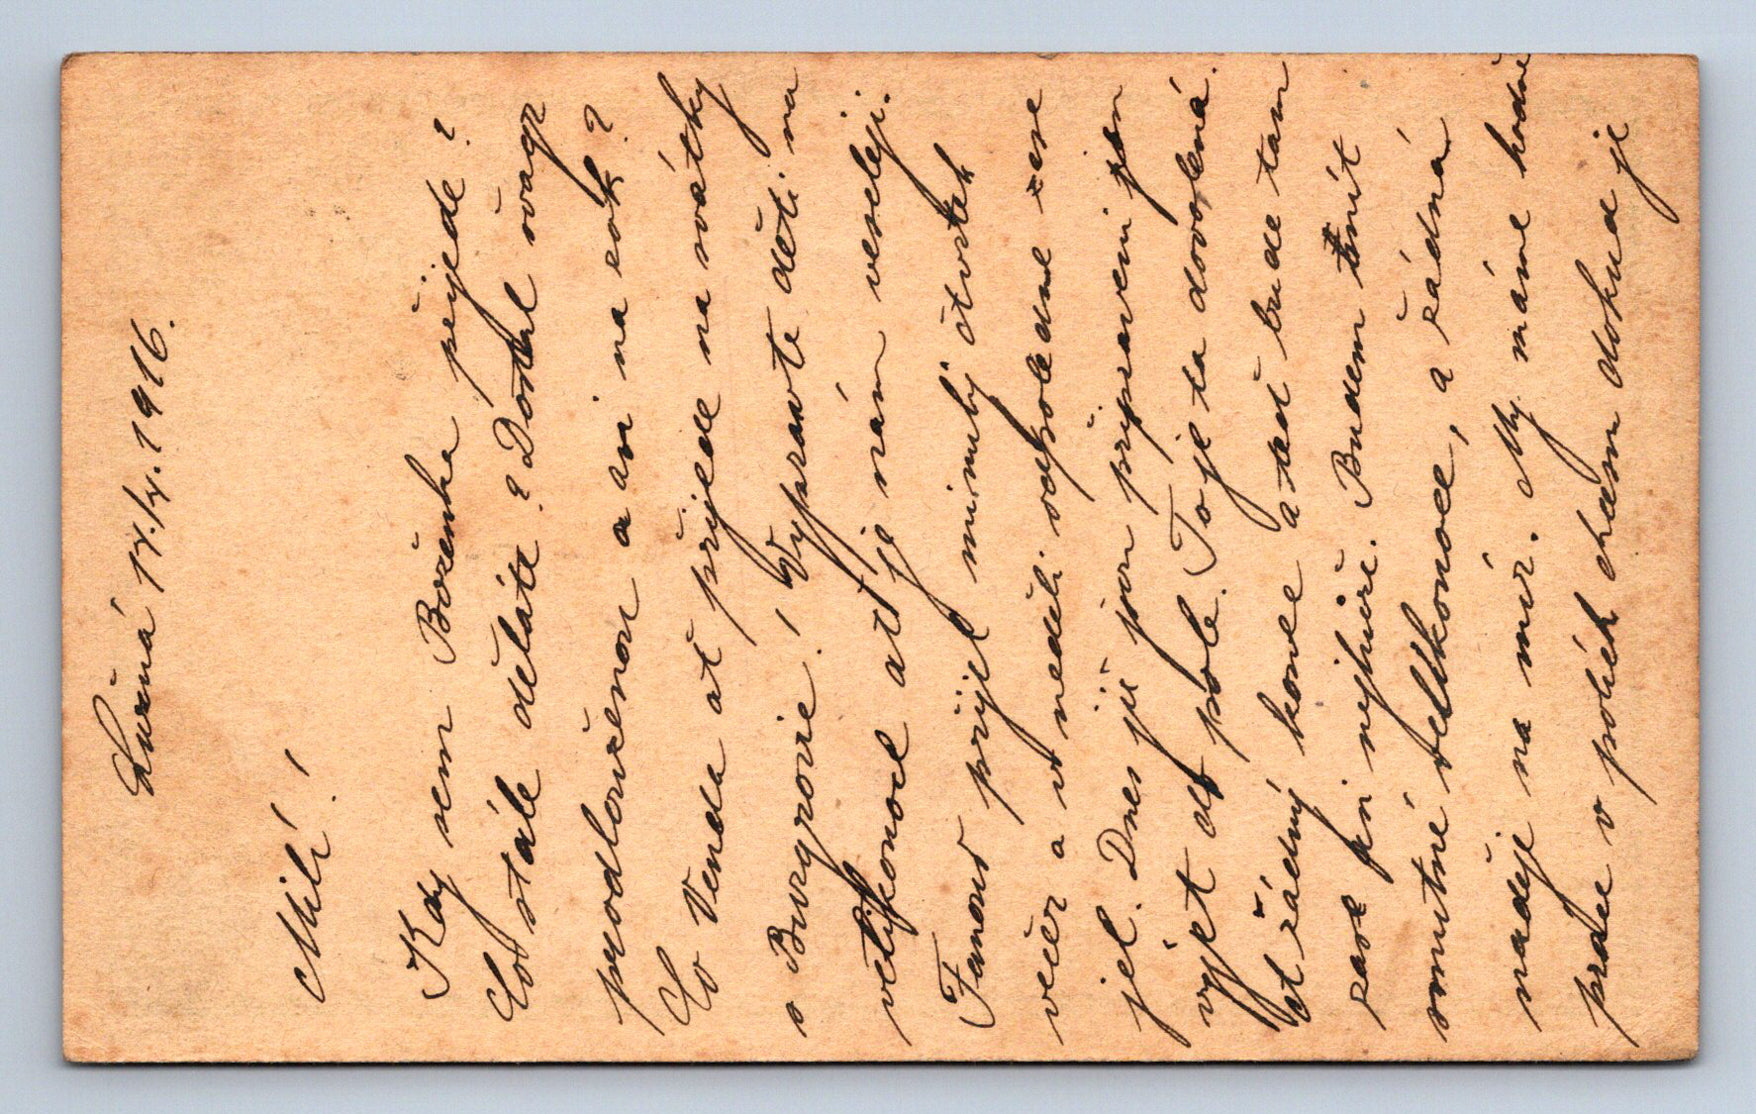 Lužná 17./4. 1916.
Milí!
Kdy sem Boženka přijede?
Co stále děláte? Dostal švagr
prodlouženou a ani na rok?
Co Venda ať přijede na svátky
s Burgrovic! Vypravte děti na
velikonoce ať je nám veseleji.
přijel minulý čtvrtek
večer a v neděli odpoledne zase
jel. Dnes již jsou připraveni jen
vyjet do pole. To je ta dovolená.
řádný konec a teď bude tam
zase jen nejhůře. Budem mít
smutné velikonoce, a řádná
naděje na mír. My máme hodně
práce v polích chcem dokud je